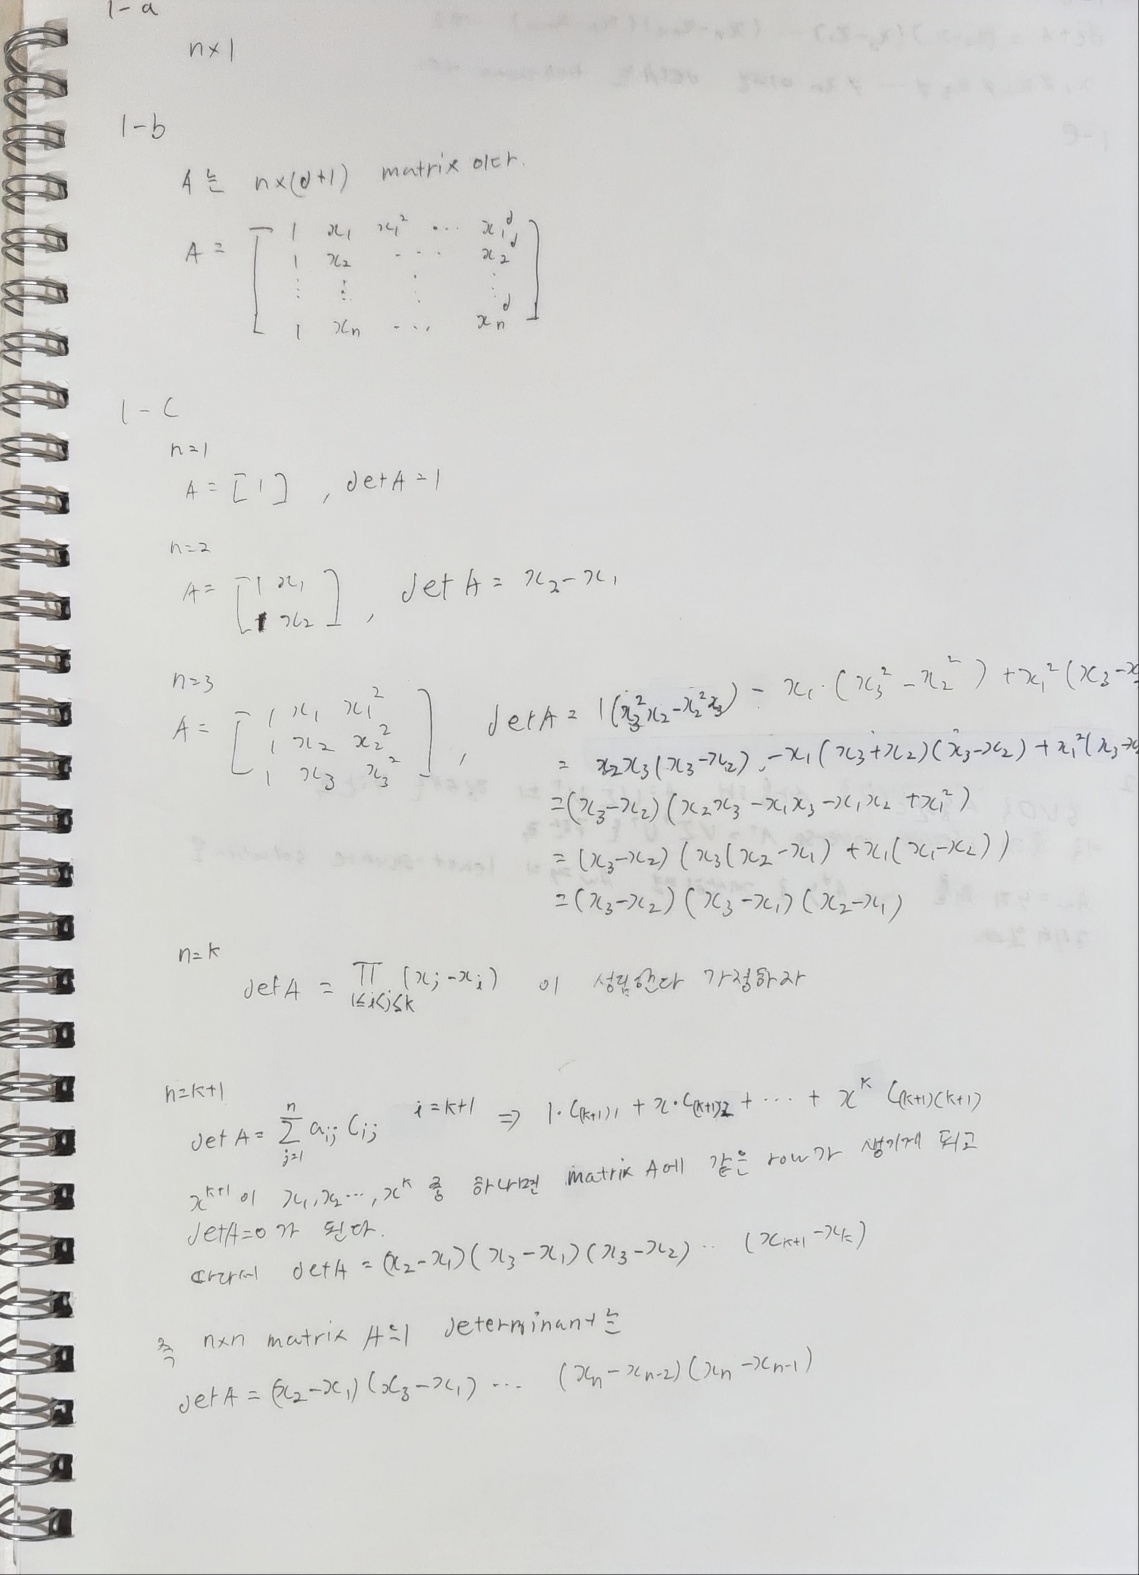 1-a
n×1
1-b
A는 n×(d+1) matrix 이다.
A = [ 1 x₁ x₁² ⋯ x₁ᵈ
1 x₂ ⋯ x₂ᵈ
⋮ ⋮ ⋮ ⋮
1 xₙ ⋯ xₙᵈ ]
1-c
n=1
A = [1] , det A = 1
n=2
A = [ 1 x₁
1 x₂ ] , det A = x₂-x₁
n=3
A = [ 1 x₁ x₁²
1 x₂ x₂²
1 x₃ x₃² ] , det A = 1(x₃²x₂-x₂²x₃) - x₁·(x₃²-x₂²) + x₁²(x₃-x₂
= x₂x₃(x₃-x₂) -x₁(x₃+x₂)(x₃-x₂) + x₁²(x₃-x₂
=(x₃-x₂)(x₂x₃-x₁x₃-x₁x₂+x₁²)
=(x₃-x₂)(x₃(x₂-x₁)+x₁(x₁-x₂))
=(x₃-x₂)(x₃-x₁)(x₂-x₁)
n=k
det A = ∏ (xⱼ-xᵢ) 이 성립한다 가정하자
1≤i<j≤k
n=k+1
det A = ∑ⱼ₌₁ⁿ aᵢⱼ Cᵢⱼ i=k+1 ⇒ 1·C₍ₖ₊₁₎₁ + x·C₍ₖ₊₁₎₂ + ⋯ + xᵏ C₍ₖ₊₁₎₍ₖ₊₁₎
xᵏ⁺¹이 x₁, x₂ ⋯, xᵏ 중 하나면 matrix A에 같은 row가 생기게 되고
det A=0 가 된다.
따라서 det A = (x₂-x₁)(x₃-x₁)(x₃-x₂) ⋯ (xₖ₊₁-xₖ)
즉 n×n matrix A의 determinant는
det A = (x₂-x₁)(x₃-x₁) ⋯ (xₙ-xₙ₋₂)(xₙ-xₙ₋₁)